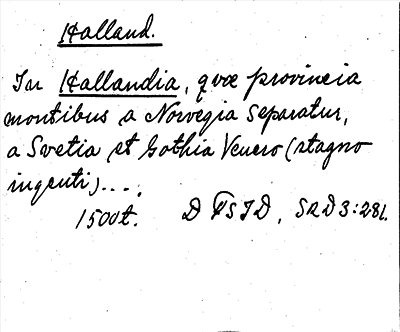 Halland.
In Hallandia, qvæ provincia
montibus a Norvegia separatur,
a Svetia et Gothia Venero (stagno
ingenti)....
1500t. D FSID, SRD 3:281.